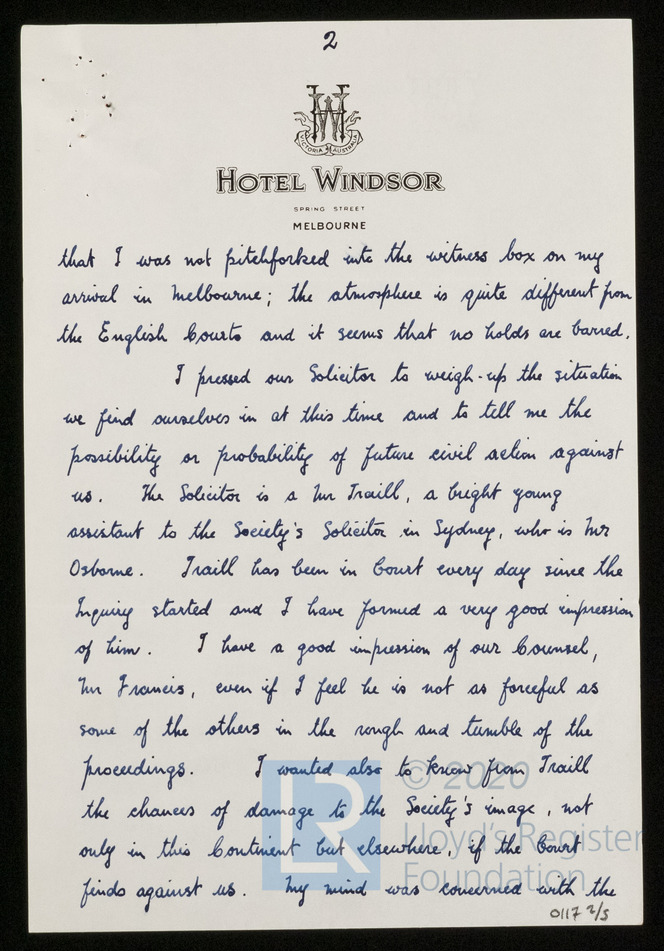 2
W
VICTORIA AUSTRALIA
HOTEL WINDSOR
SPRING STREET
MELBOURNE
that I was not pitchforked into the witness box on my
arrival in Melbourne; the atmosphere is quite different from
the English Courts and it seems that no holds are barred.
I pressed our Solicitor to weigh-up the situation
we find ourselves in at this time and to tell me the
possibility or probability of future civil action against
us. The Solicitor is a Mr Traill, a bright young
assistant to the Society's Solicitor in Sydney, who is Mr
Osborne. Traill has been in Court every day since the
Inquiry started and I have formed a very good impression
of him. I have a good impression of our Counsel,
Mr Francis, even if I feel he is not as forceful as
some of the others in the rough and tumble of the
proceedings. I wanted also to know from Traill
the chances of damage to the Society's image, not
only in this Continent but elsewhere, if the Court
finds against us. My mind was concerned with the
0117 2/5
LR
© 2020
Lloyd's Register
Foundation